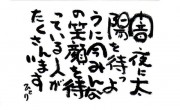 闇夜に太
陽を待つよ
うに今みんな
の笑顔を待
っている人が
たくさんいます